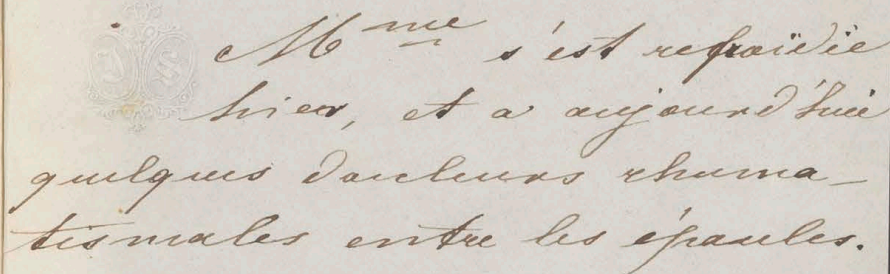 Mme s'est refroidie
hier, et a aujourd'hui
quelques douleurs rhuma-
tismales entre les épaules.